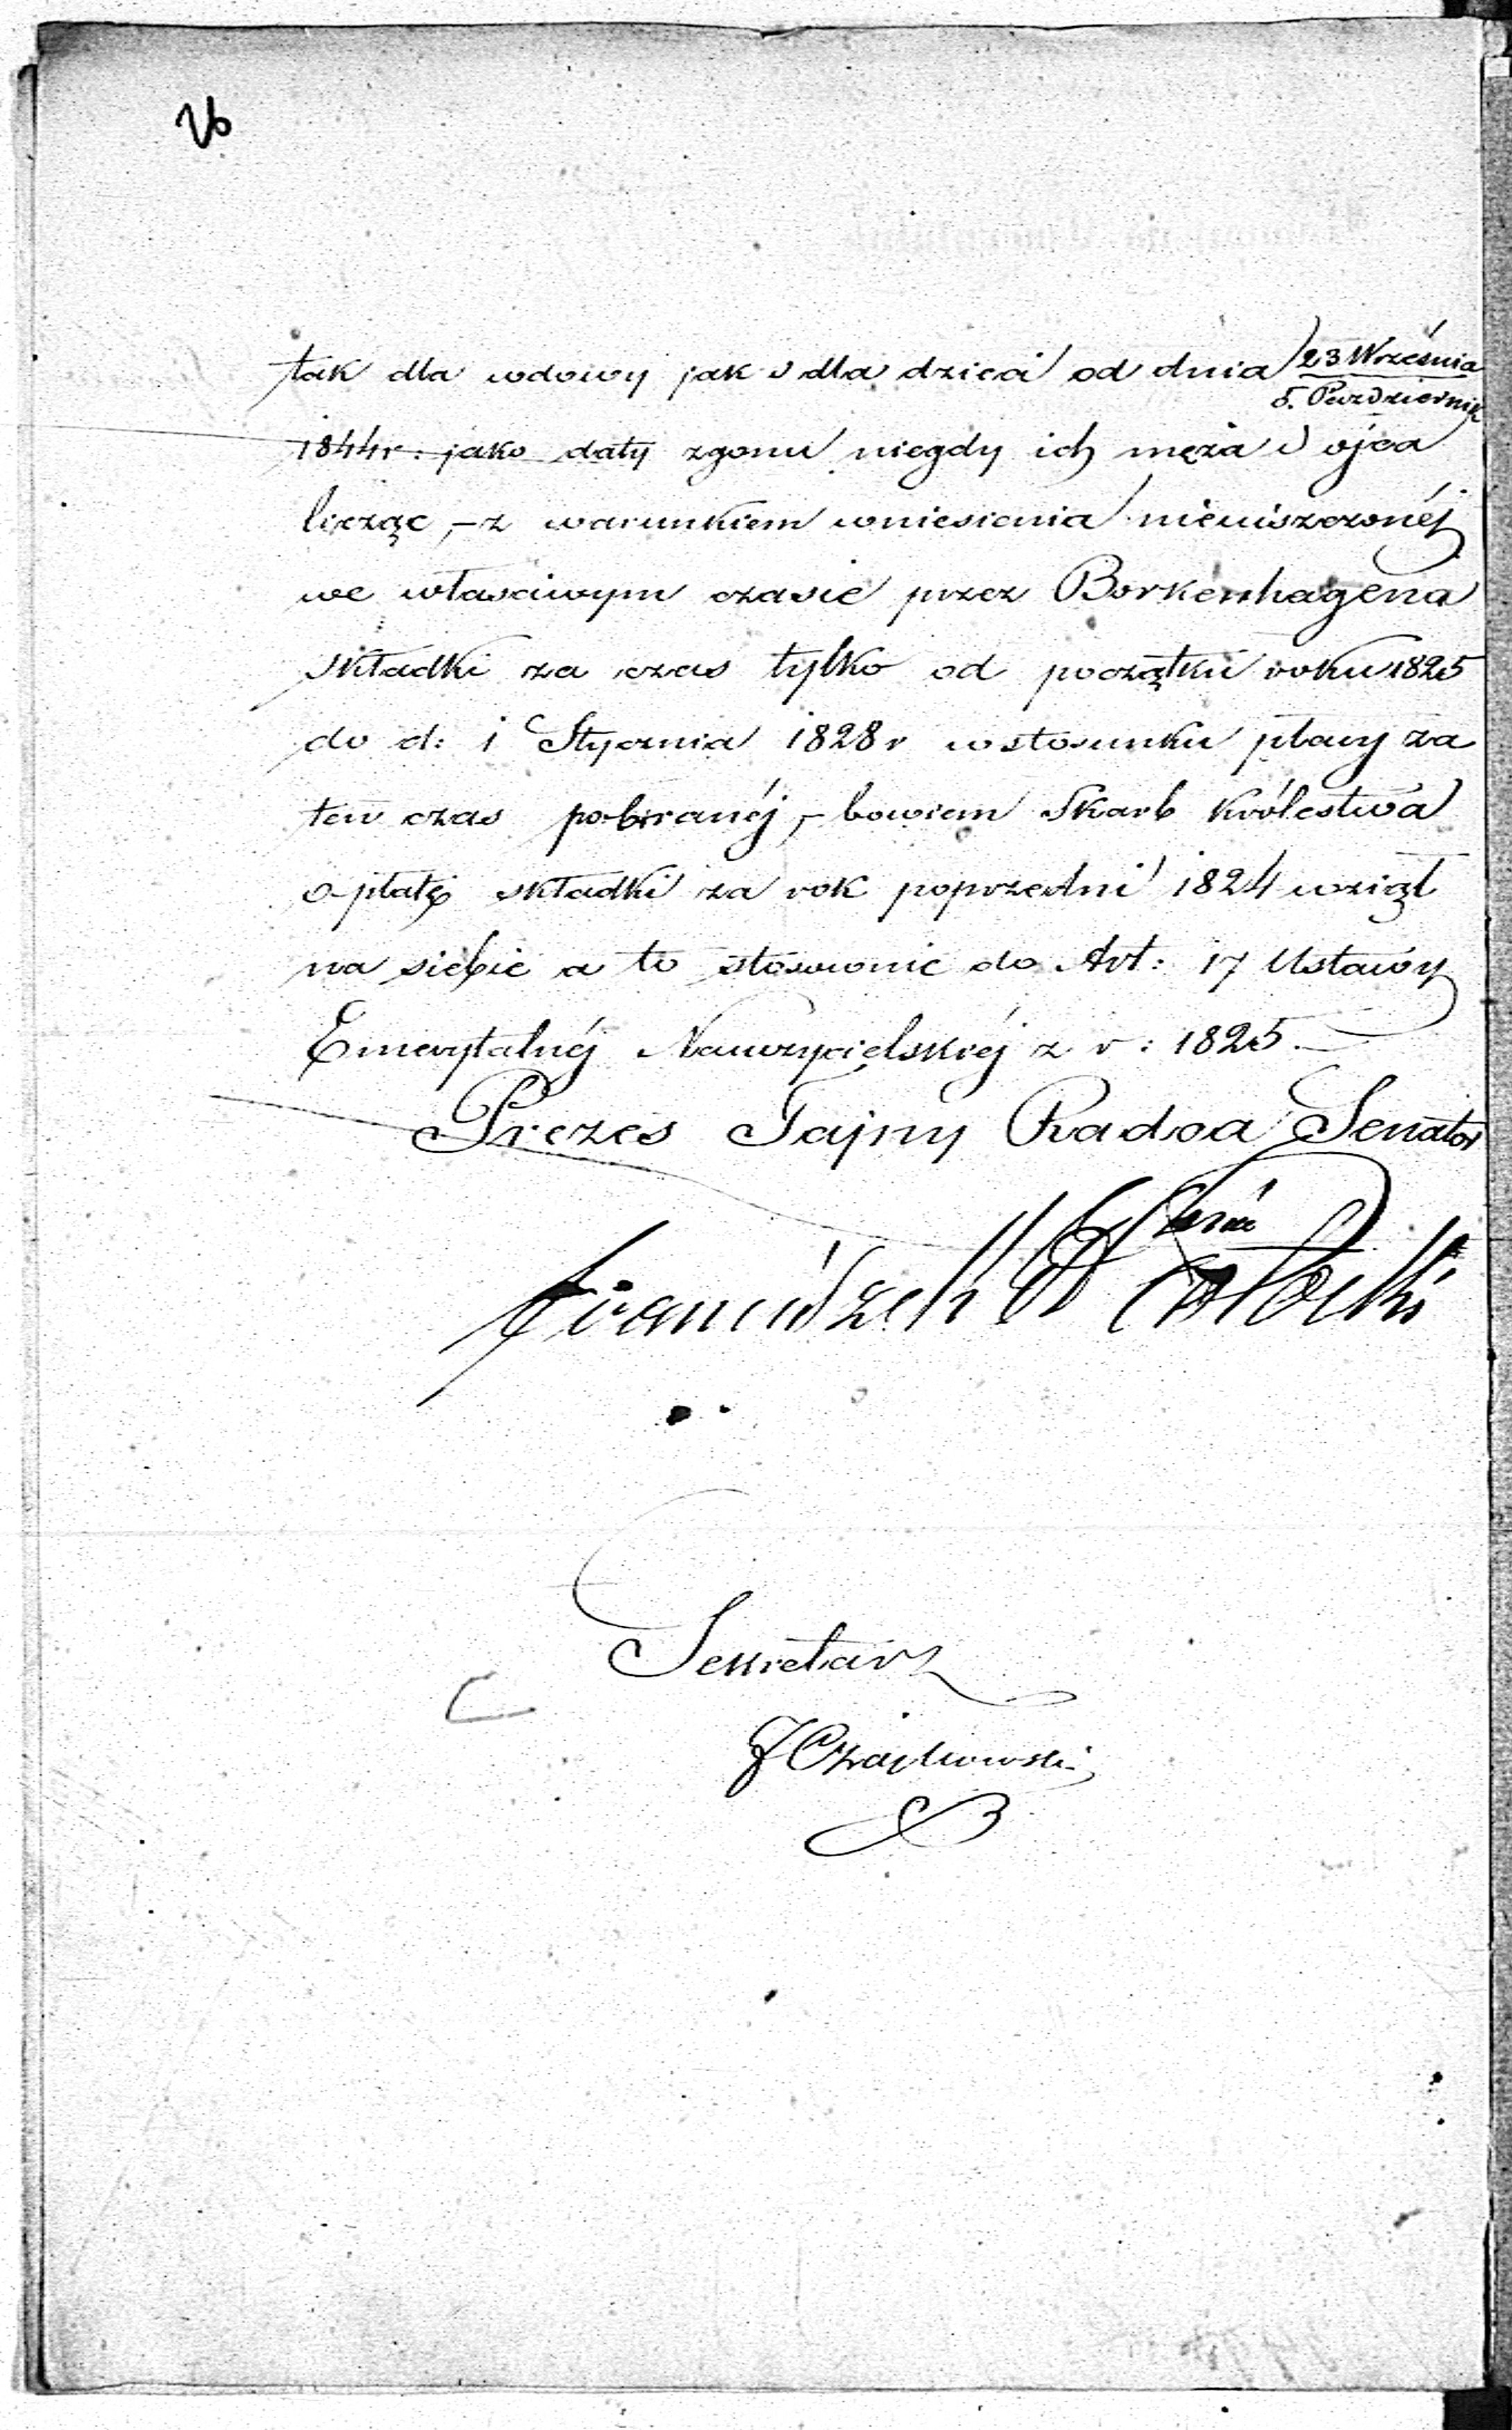 26
tak dla wdowy jak i dla dzieci od dnia 23 Września
5. Październik
1844r: jako daty zgonu niegdy ich męża i ojca
licząc, – z warunkiem wniesienia nieuiszczonéj
we własciwym czasie przez Borkenhagena
składki za czas tylko od początku roku 1825
do d: 1 Stycznia 1828 r w stosunku płacy za
ten czas pobieranéj, – bowiem Skarb Królestwa
opłatę składki za rok poprzedni 1824 wziął
na siebie a to stosownie do Art: 17 Ustawy
Emerytalnéj Nauczycielskiéj z r: 1825.
Prezes Tajny Radca Senator
Franciszek Potocki
Sekretarz
J Czajkowski